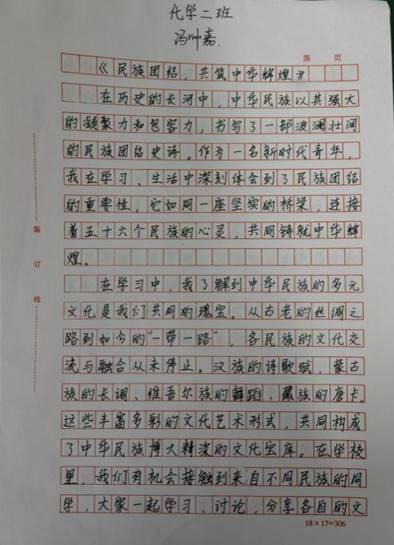 化学二班
冯帅嘉
第 页
《民族团结，共筑中华辉煌》
在历史的长河中，中华民族以其强大
的凝聚力和包容力，书写了一部波澜壮阔
的民族团结史诗。作为一名新时代青年，
我在学习、生活中深刻体会到了民族团结
的重要性，它如同一座坚实的桥梁，连接
着五十六个民族的心灵，共同铸就中华辉
煌。
在学习中，我了解到中华民族的多元
文化是我们共同的瑰宝。从古老的丝绸之
路到如今的“一带一路”，各民族的文化交
流与融合从未停止。汉族的诗歌赋，蒙古
族的长调、维吾尔族的舞蹈，藏族的唐卡。
这些丰富多彩的文化艺术形式，共同构成
了中华民族博大精深的文化宝库。在学校
里，我们有机会接触到来自不同民族的同
学，大家一起学习，讨论，分享各自的文
18×17=306
装
订
线